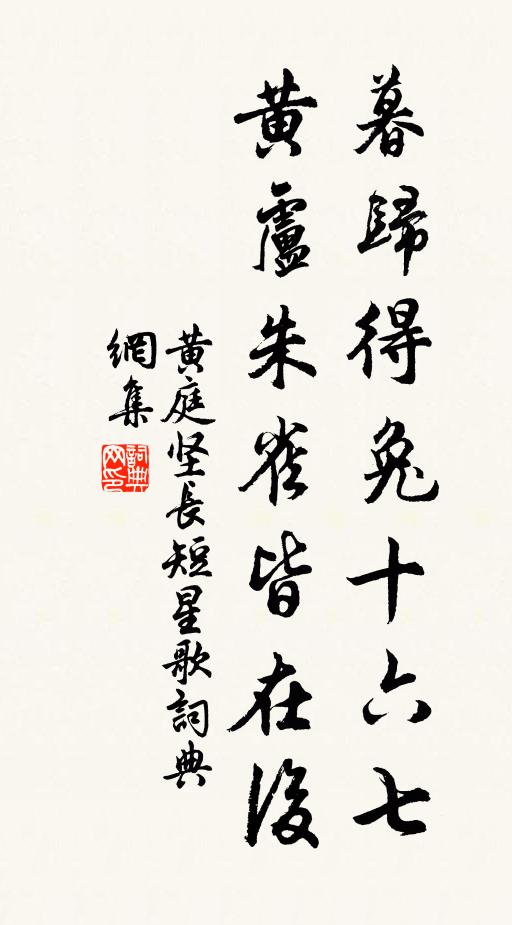 暮歸得兔十六七
黃盧朱雀皆在後
黃庭坚長短星歌詞典
網集
詞典
网印